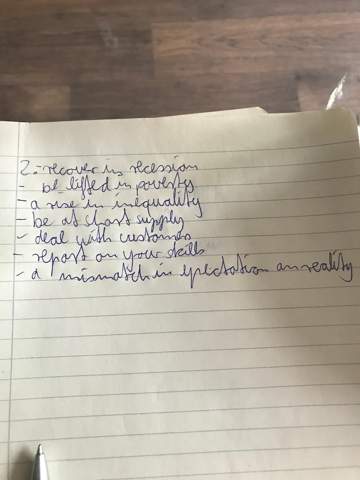 2.- recover in recession
- be lifted in poverty
- a rise in inequality
- be at short supply
- deal with customers
- report on your skills
- a mismatch in epectation an reality